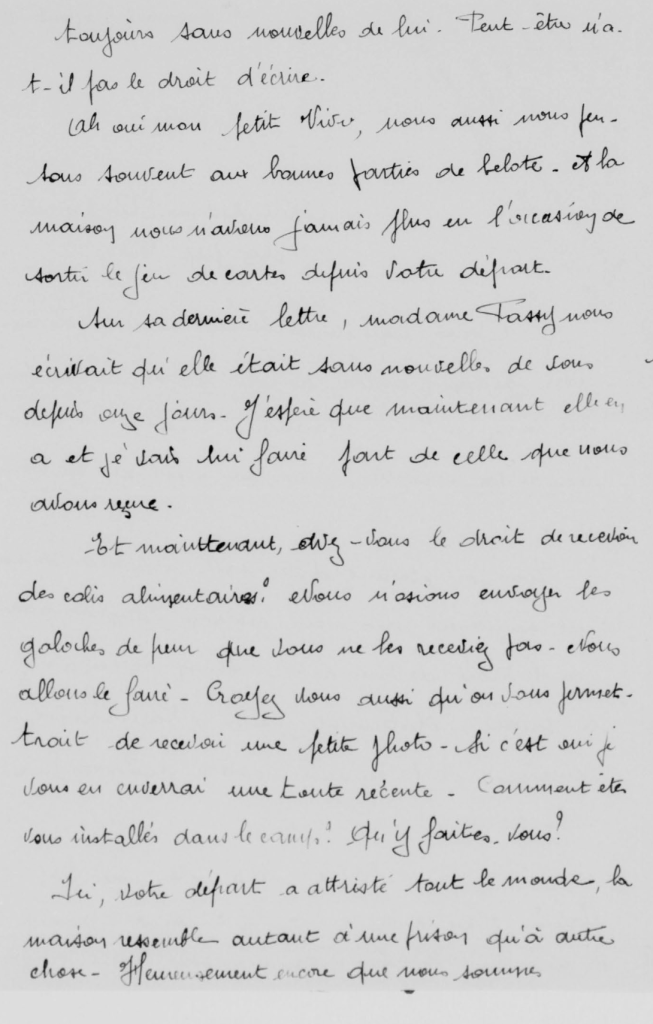 toujours sans nouvelles de lui. Peut-être n'a-
t-il pas le droit d'écrire.
Ah oui mon petit Vivi, nous aussi nous pen-
sons souvent aux bonnes parties de belote. A la
maison nous n'avons jamais plus eu l'occasion de
sortir le jeu de cartes depuis votre départ.
Sur sa dernière lettre, madame Tassy nous
écrivait qu'elle était sans nouvelles de vous
depuis onze jours. J'espère que maintenant elle en
a et je vais lui faire part de celle que nous
avons reçue.
Et maintenant, avez-vous le droit de recevoir
des colis alimentaires? Nous n'osions envoyer les
galoches de peur que vous ne les receviez pas. Nous
allons le faire. Croyez vous aussi qu'on vous permet-
trait de recevoir une petite photo. Si c'est oui je
vous en enverrai une toute récente. Comment êtes
vous installés dans le camp? Qu'y faites-vous?
Ici, votre départ a attristé tout le monde, la
maison ressemble autant à une prison qu'à autre
chose. Heureusement encore que nous sommes